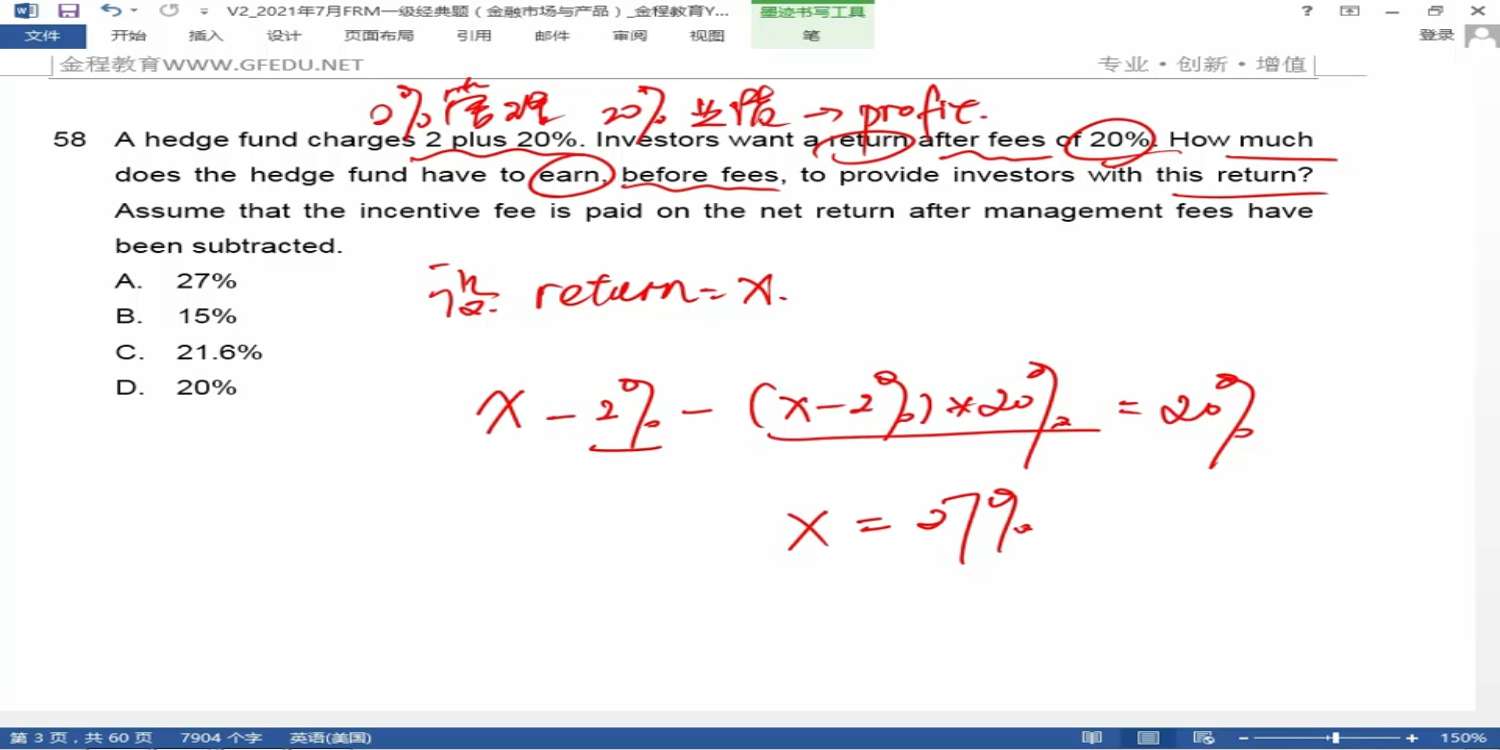 V2_2021年7月FRM一级经典题（金融市场与产品）_金程教育Y... 墨迹书写工具 ?
文件 开始 插入 设计 页面布局 引用 邮件 审阅 视图 笔 登录
金程教育WWW.GFEDU.NET 专业·创新·增值
% 管理 20% 业绩 → profit.
58 A hedge fund charges 2 plus 20%. Investors want a return after fees of 20%. How much
does the hedge fund have to earn, before fees, to provide investors with this return?
Assume that the incentive fee is paid on the net return after management fees have
been subtracted.
A. 27%
B. 15%
C. 21.6%
D. 20%
设 return = x.
x - 2% - (x-2%)*20% = 20%
x = 27%
第 3 页，共 60 页 7904 个字 英语(美国) 150%